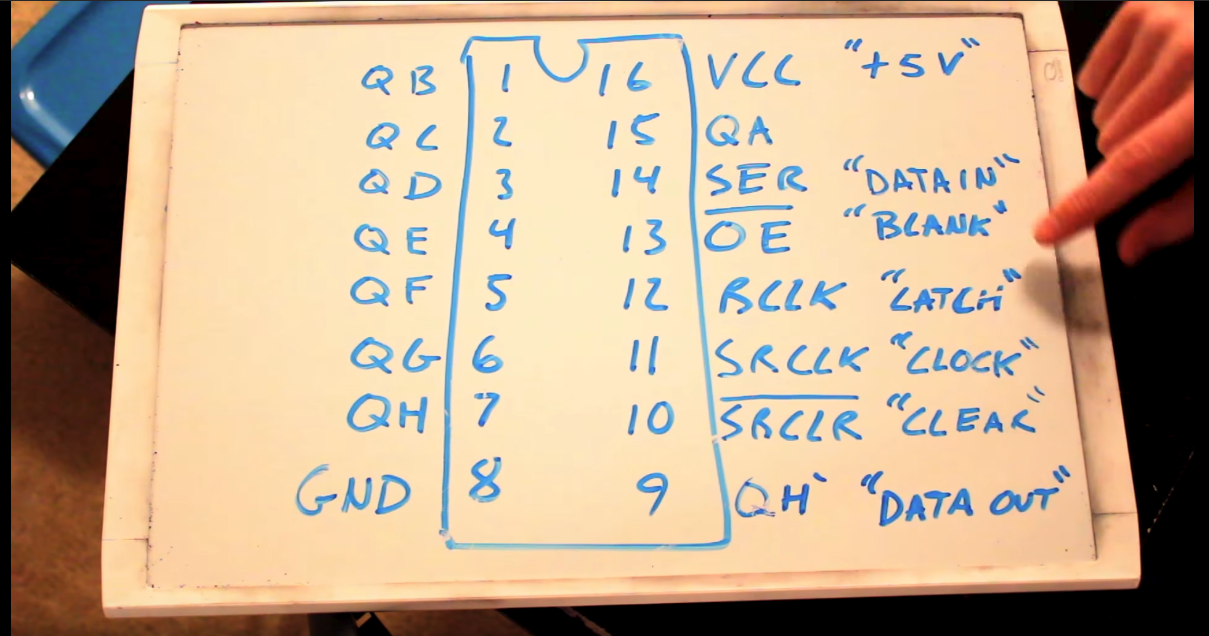 QB 1 16 VCC "+5V"
QC 2 15 QA
QD 3 14 SER "DATA IN"
QE 4 13 OE "BLANK"
QF 5 12 RCLK "LATCH"
QG 6 11 SRCLK "CLOCK"
QH 7 10 SRCLR "CLEAR"
GND 8 9 QH` "DATA OUT"